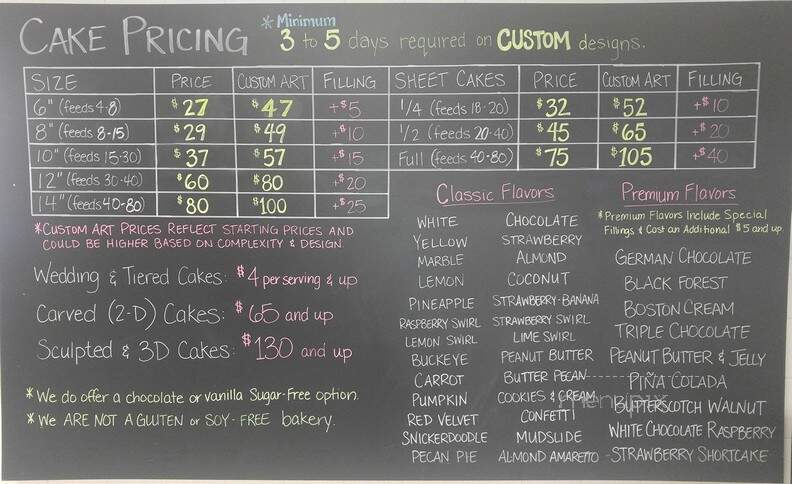 CAKE PRICING
* Minimum
3 to 5 days required on CUSTOM designs.
SIZE PRICE CUSTOM ART FILLING
6" (feeds 4-8) $27 $47 +$5
8" (feeds 8-15) $29 $49 +$10
10" (feeds 15-30) $37 $57 +$15
12" (feeds 30-40) $60 $80 +$20
14" (feeds 40-80) $80 $100 +$25
SHEET CAKES PRICE CUSTOM ART FILLING
1/4 (feeds 18-20) $32 $52 +$10
1/2 (feeds 20-40) $45 $65 +$20
Full (feeds 40-80) $75 $105 +$40
*CUSTOM ART PRICES REFLECT STARTING PRICES AND
COULD BE HIGHER BASED ON COMPLEXITY & DESIGN.
Wedding & Tiered Cakes: $4 per serving & up
Carved (2-D) Cakes: $65 and up
Sculpted & 3D Cakes: $130 and up
* We do offer a chocolate or vanilla Sugar-Free option.
* We ARE NOT A GLUTEN or SOY-FREE bakery.
Classic Flavors
WHITE
YELLOW
MARBLE
LEMON
PINEAPPLE
RASPBERRY SWIRL
LEMON SWIRL
BUCKEYE
CARROT
PUMPKIN
RED VELVET
SNICKERDOODLE
PECAN PIE
CHOCOLATE
STRAWBERRY
ALMOND
COCONUT
STRAWBERRY-BANANA
STRAWBERRY SWIRL
LIME SWIRL
PEANUT BUTTER
BUTTER PECAN
COOKIES & CREAM
CONFETTI
MUDSLIDE
ALMOND AMARETTO
Premium Flavors
*Premium Flavors Include Special
Fillings & Cost an Additional $5 and up.
GERMAN CHOCOLATE
BLACK FOREST
BOSTON CREAM
TRIPLE CHOCOLATE
PEANUT BUTTER & JELLY
PIÑA COLADA
BUTTERSCOTCH WALNUT
WHITE CHOCOLATE RASPBERRY
STRAWBERRY SHORTCAKE
menupix